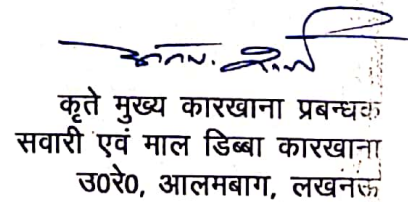 कृते मुख्य कारखाना प्रबन्धक
सवारी एवं माल डिब्बा कारखाना
उ०रे०, आलमबाग, लखनऊ